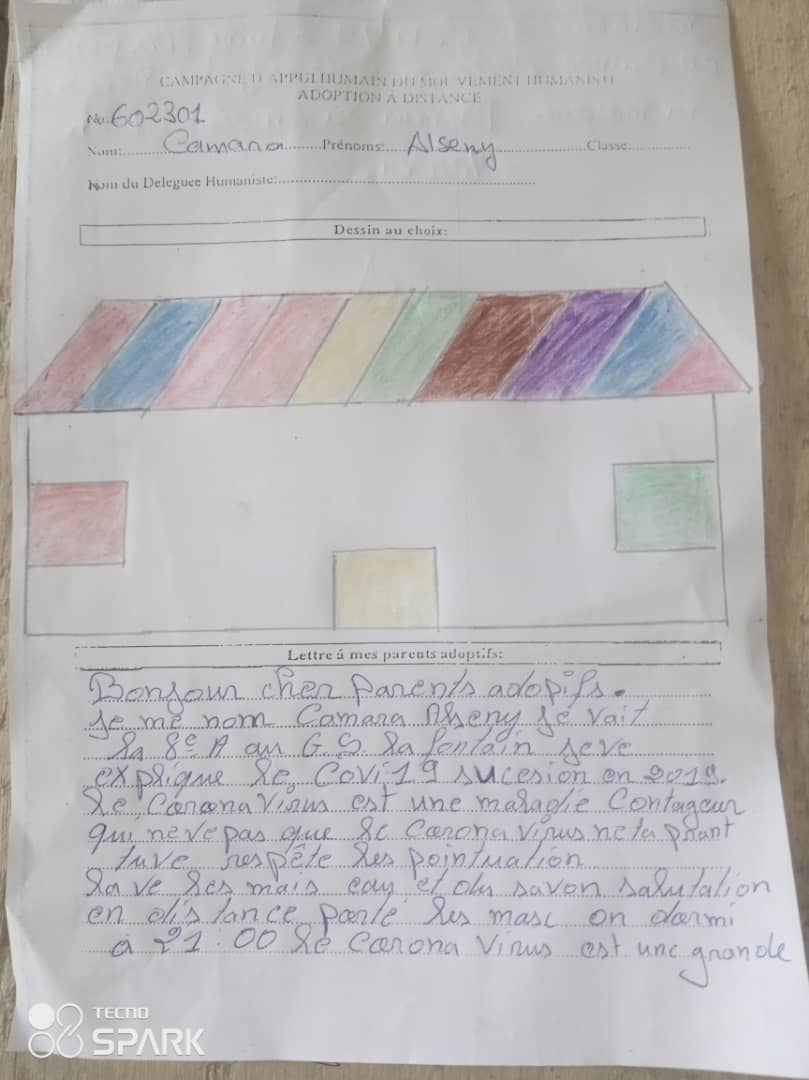 CAMPAGNE D'APPUI HUMAIN DU MOUVEMENT HUMANISTE
ADOPTION À DISTANCE
No. 602301
Nom:......Camara......Prénoms:...Alseny......Classe:......
Nom du Deleguee Humaniste:......
Dessin au choix:
Lettre á mes parents adoptifs:
Bonjour cher parents adopifs.
je me nom Camara Alseny je vait
la 8e A au G.S. la fontain je ve
explique le, Covi-19 sucesion en 2019.
le, Carona Virus est une maladie Contageur
qui ne ve pas que le Carona virus neta
tu ve respête les pointuation
lave les mais eau et du savon salutation
en distance parte les masc on darmi
a 21:00 le Carona Virus est une grande
TECNO
SPARK